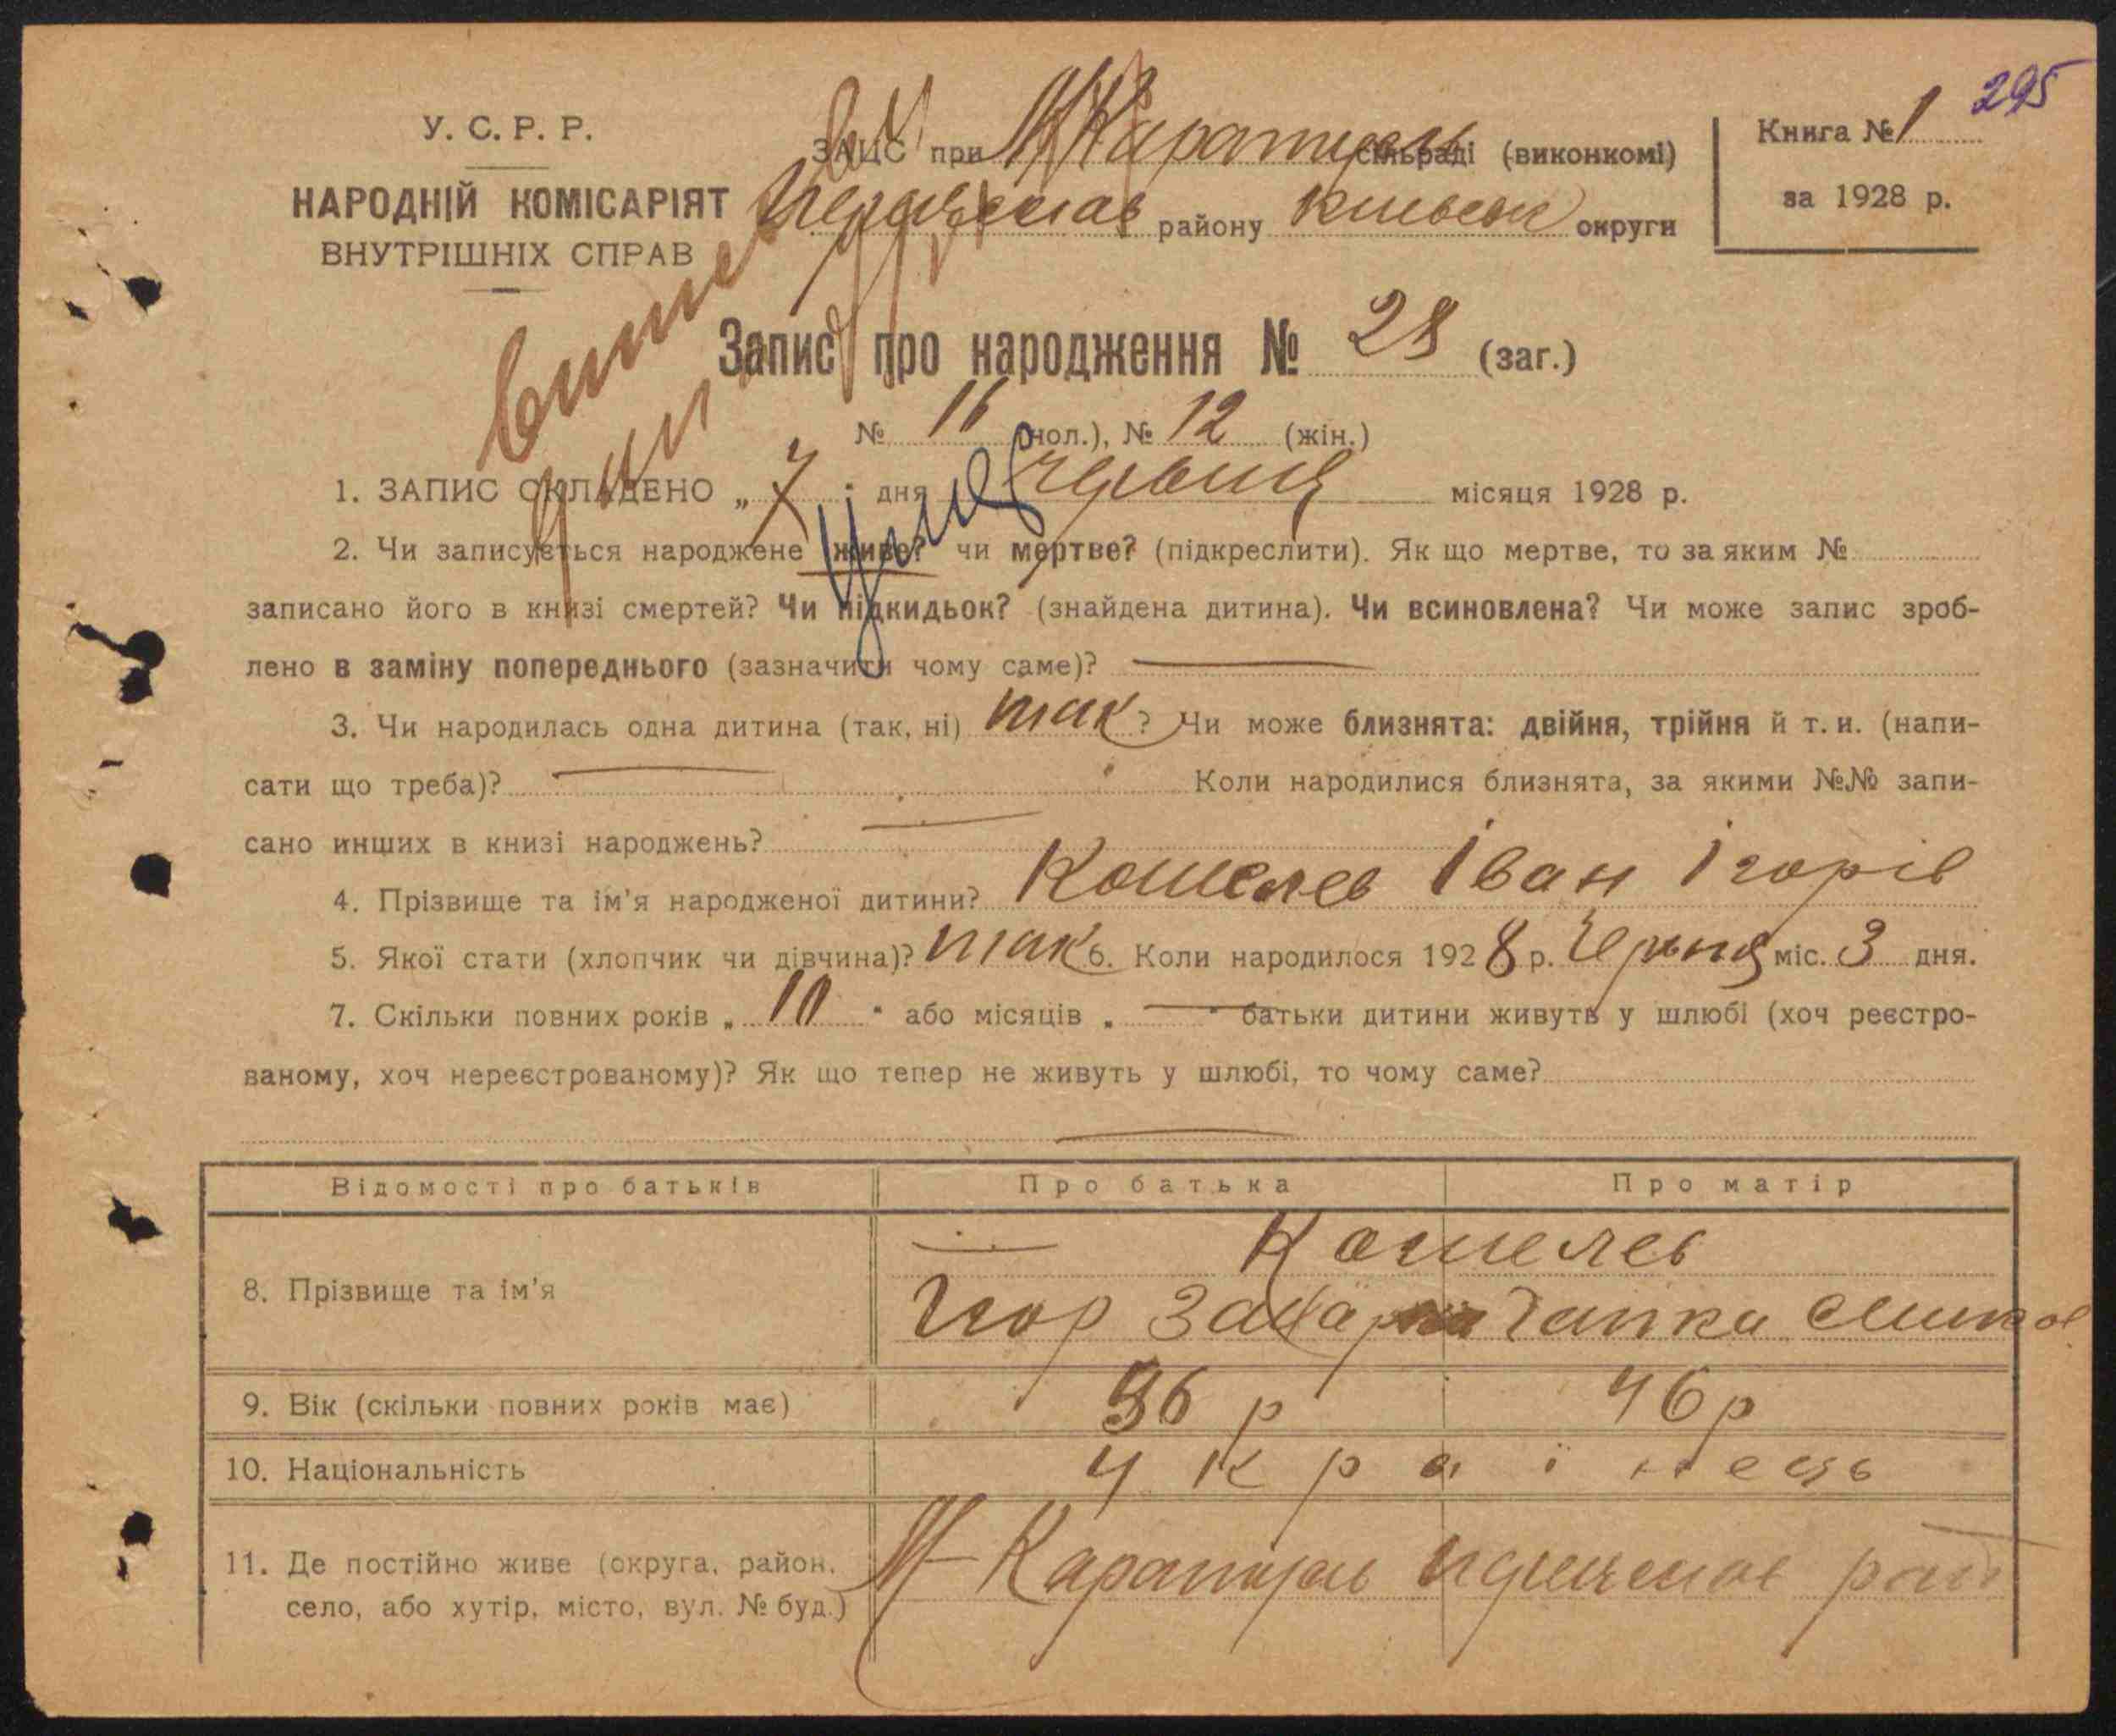 295
У. С. Р. Р.
НАРОДНІЙ КОМІСАРІЯТ
ВНУТРІШНІХ СПРАВ
ЗАЦС при М Каратуль сільраді (виконкомі)
району округи
Книга № 1
за 1928 р.
Запис про народження № 28 (заг.)
№ 16 (чол.), № 12 (жін.)
1. ЗАПИС СКЛАДЕНО „ 7 " дня червня місяця 1928 р.
2. Чи записується народжене живе? чи мертве? (підкреслити). Як що мертве, то за яким №
записано його в книзі смертей? Чи підкидьок? (знайдена дитина). Чи всиновлена? Чи може запис зроб-
лено в заміну попереднього (зазначити чому саме)?
3. Чи народилась одна дитина (так, ні) так ? Чи може близнята: двійня, трійня й т. и. (напи-
сати що треба)? Коли народилися близнята, за якими №№ запи-
сано инших в книзі народжень?
4. Прізвище та ім'я народженої дитини? Кошелев Іван Ігорів
5. Якої стати (хлопчик чи дівчина)? так 6. Коли народилося 1928 р. Червня міс. 3 дня.
7. Скільки повних років „ 10 " або місяців „ — " батьки дитини живуть у шлюбі (хоч реєстро-
ваному, хоч нереєстрованому)? Як що тепер не живуть у шлюбі, то чому саме?
Відомості про батьків Про батька Про матір
8. Прізвище та ім'я Кошелев
Ігор Ганка
9. Вік (скільки повних років має) 36 р 46 р
10. Національність Українець
11. Де постійно живе (округа, район,
село, або хутір, місто, вул. № буд.) М-Каратуль рай